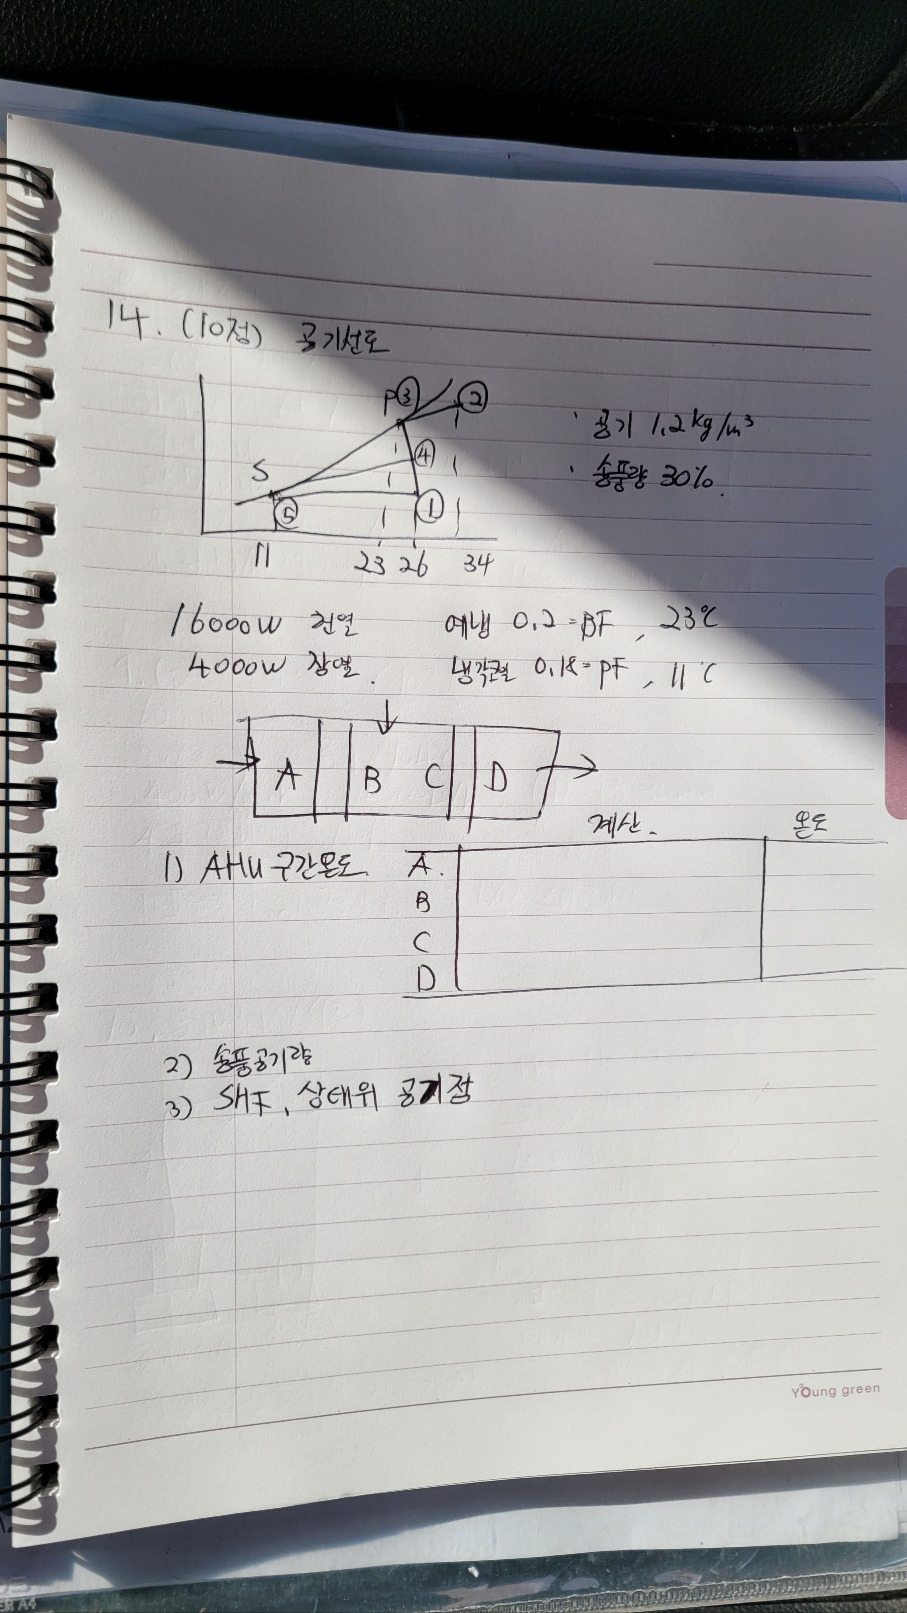 14. (10점) 공기선도
P ③ ②
· 공기 1.2kg/m³
④
S
· 송풍량 30%.
⑤ ①
11 23 26 34
16000W 현열 예냉 0.2=BF, 23℃
4000W 잠열. 냉각코일 0.18=PF, 11℃
A B C D
계산. 온도
1) AHU 구간온도. A.
B
C
D
2) 송풍공기량
3) SHF, 상태위 공기점
Young green
A4